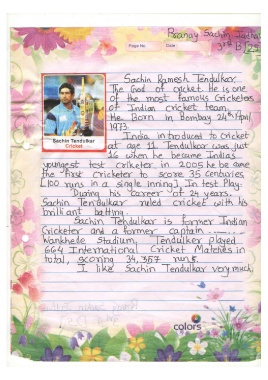 Pranay Sachin
3rd B 25
Page No. Date
Sachin Ramesh Tendulkar
The God of cricket. He is one
of the most famous Cricketers
of Indian cricket team.
He Born in Bombay 24th April
1973.
India introduced to cricket
at age 11 Tendulkar was just
16 when he became India's
youngest test criketer in 2005 he became
the first cricketer to score 35 centuries
[100 runs in a single inning] In test Play.
During his career of 24 years.
Sachin Tendulkar ruled cricket with his
brilliant batting.
Sachin Tendulkar is former Indian
Cricketer and a former captain
Wankhede Stadium, Tendulkar played
664 International Cricket Matches in
total, scoring 34,357 runs.
I like Sachin Tendulkar very much.
Sachin Tendulkar
Cricket
colors